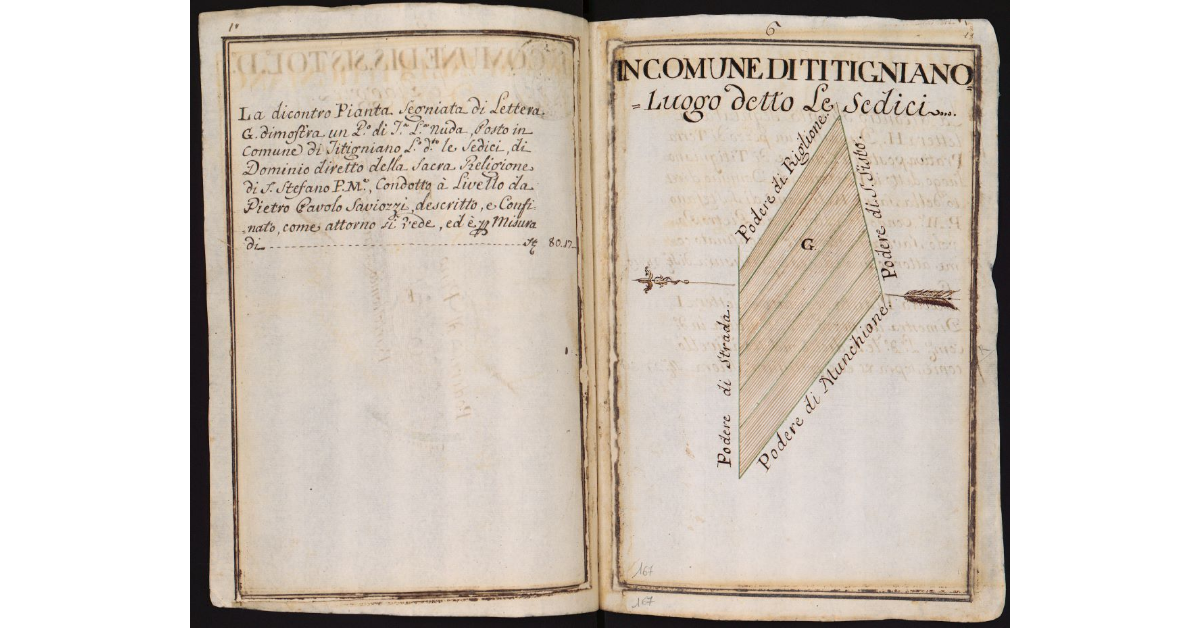 La dicontro Pianta Segniata di Lettera
G. dimostra un P.º di T.ª L.ª nuda, Posto in
Comune di Titigniano L.º d.º le Sedici, di
Dominio diretto della Sacra Religione
di S. Stefano P.M.º, Condotto à Livello da
Pietro Pavolo Saviozzi, descritto, e Confi-
nato, come attorno si vede, ed è p Misura
di 80.17
6
IN COMUNE DI TITIGNIANO
= Luogo detto Le Sedici
Podere di Riglione.
Podere di S. Sisto.
G
Podere di Strada.
Podere di Munchione.
167
167